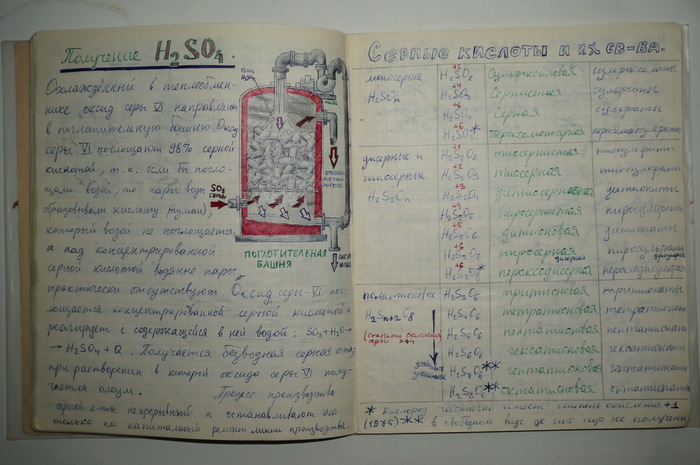 Получение H₂SO₄.
Охлаждённый в теплообмен-
нике оксид серы VI направляют
в поглотительную башню. Оксид
серы VI поглощают 98% серной
кислотой, т.к. если бы погло-
щали водой, то пары воды
образовывали кислоту (туман)
который водой не поглощается,
а над концентрированной
серной кислотой водяные пары
практически отсутствуют. Оксид серы VI по-
глощается концентрированной серной кислотой и
реагирует с содержащейся в ней водой: SO₃+H₂O→
→H₂SO₄ + Q. Получается безводная серная к-та,
при растворении в которой оксида серы VI полу-
чается олеум. Процесс производства
серной к-ты непрерывный и останавливают его
только на капитальный ремонт линии производства.
SO₃
ПОГЛОТИТЕЛЬНАЯ
БАШНЯ
СЕРНЫЕ КИСЛОТЫ И ИХ СВ-ВА.
моносерные
H₂SOn
H₂SO₂ сульфоксиловая сульфоксилаты
H₂SO₃ Сернистая сульфиты
H₂SO₄ Серная сульфаты
H₂SO₅* Пероксомоносерная
дисерные и
тиосерные
H₂S₂On
H₂S₂O₂ тиосернистая тиосульфиты
H₂S₂O₃ тиосерная тиосульфаты
H₂S₂O₄ дитионистая дитиониты
H₂S₂O₅ пиросернистая пиросульфиты
H₂S₂O₆ дитионовая дитионаты
H₂S₂O₇ пиросерная дисерная пиросульфаты
H₂S₂O₈* пероксодисерная
политионовые
H₂Sn+2O₆
(степень окисления
серы
H₂S₃O₆ тритионовая тритионаты
H₂S₄O₆ тетратионовая тетратионаты
H₂S₅O₆ пентатионовая пентатионаты
H₂S₆O₆ гексатионовая гексатионаты
H₂S₇O₆** гептатионовая гептатионаты
H₂S₈O₆** октатионовая октатионаты
* кислород частично имеет степень окисления
(1975) ** в свободном виде до сих пор не получены